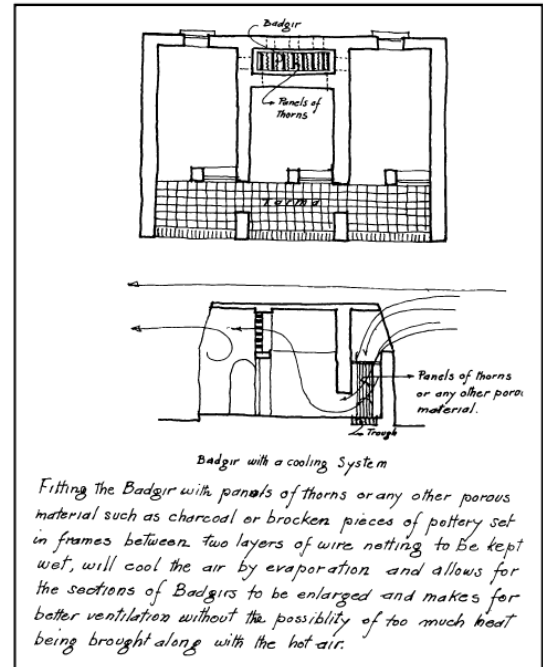 Badgir
Panels of
thorns
Tarma
Panels of thorns
or any other porou
material.
Trough
Badgir with a cooling System
Fitting the Badgir with panals of thorns or any other porous
material such as charcoal or brocken pieces of pottery set
in frames between two layers of wire netting to be kept
wet, will cool the air by evaporation and allows for
the sections of Badgirs to be enlarged and makes for
better ventilation without the possiblity of too much heat
being brought along with the hot air.